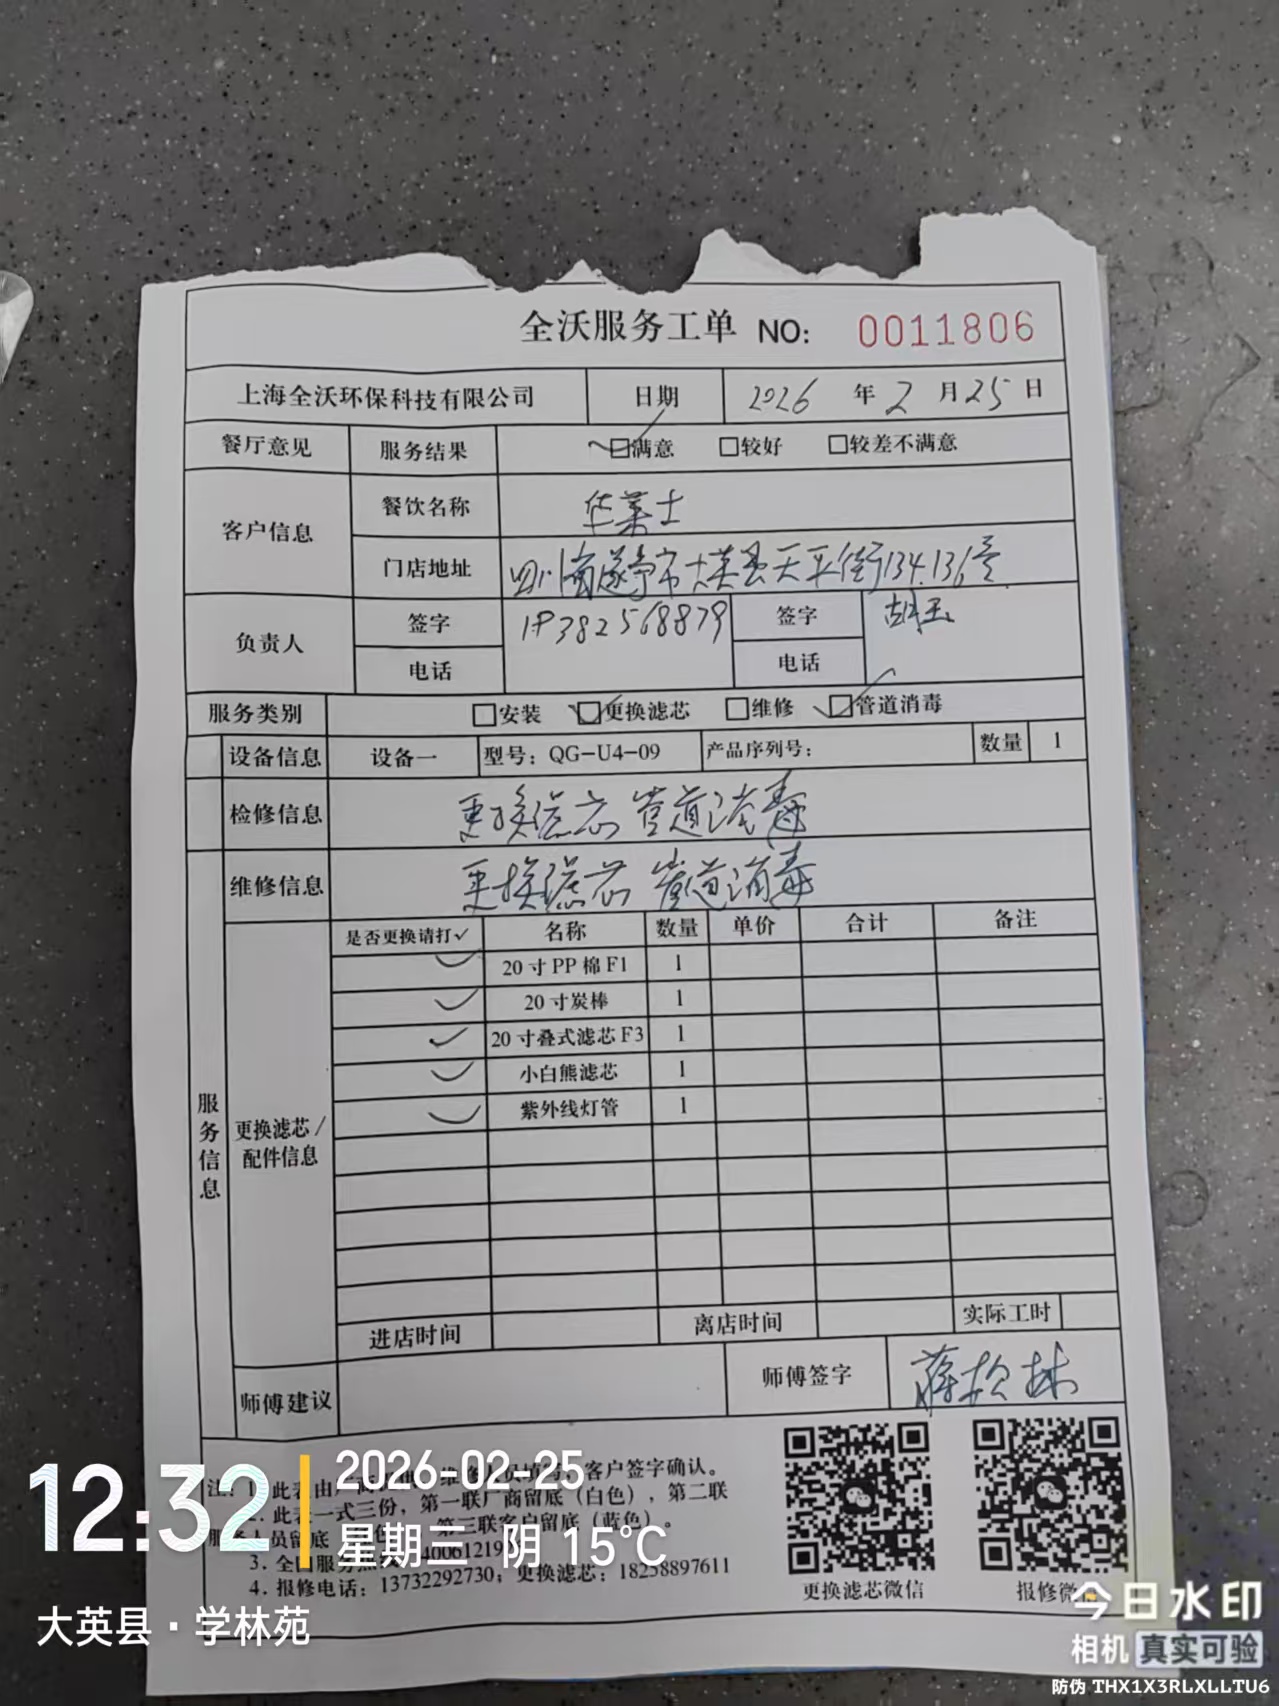 全沃服务工单 NO: 0011806
上海全沃环保科技有限公司 日期 2026 年 2 月 25 日
餐厅意见 服务结果 ☑满意 □较好 □较差不满意
客户信息 餐饮名称 华莱士
门店地址 四川省遂宁市大英县天平街134.136号
负责人 签字 电话 18382568879 签字 电话 胡玉
服务类别 □安装 ☑更换滤芯 □维修 ☑管道消毒
设备信息 设备一 型号：QG-U4-09 产品序列号： 数量 1
检修信息 更换滤芯 管道消毒
维修信息 更换滤芯 管道消毒
服务信息 更换滤芯/配件信息
是否更换请打✓ 名称 数量 单价 合计 备注
✓ 20寸PP棉F1 1
✓ 20寸炭棒 1
✓ 20寸叠式滤芯F3 1
✓ 小白熊滤芯 1
✓ 紫外线灯管 1
进店时间 离店时间 实际工时
师傅建议 师傅签字
注：1.此表由 客户签字确认。
2.此表一式三份，第一联厂商留底（白色），第二联
服务人员留底 第三联客户留底（蓝色）。
3.全国服务热 40061219
4.报修电话：13732292730；更换滤芯：18258897611
更换滤芯微信 报修微
12:32
2026-02-25
星期三 阴 15℃
大英县·学林苑
今日水印
相机 真实可验
防伪 THX1X3RLXLLTU6